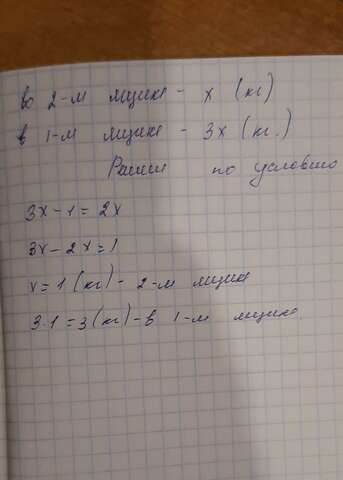 во 2-м ящике - x (кг)
в 1-м ящике - 3x (кг.)
по условию
3x - 1 = 2x
3x - 2x = 1
x = 1 (кг) - 2-м ящик
3·1 = 3 (кг) - в 1-м ящике